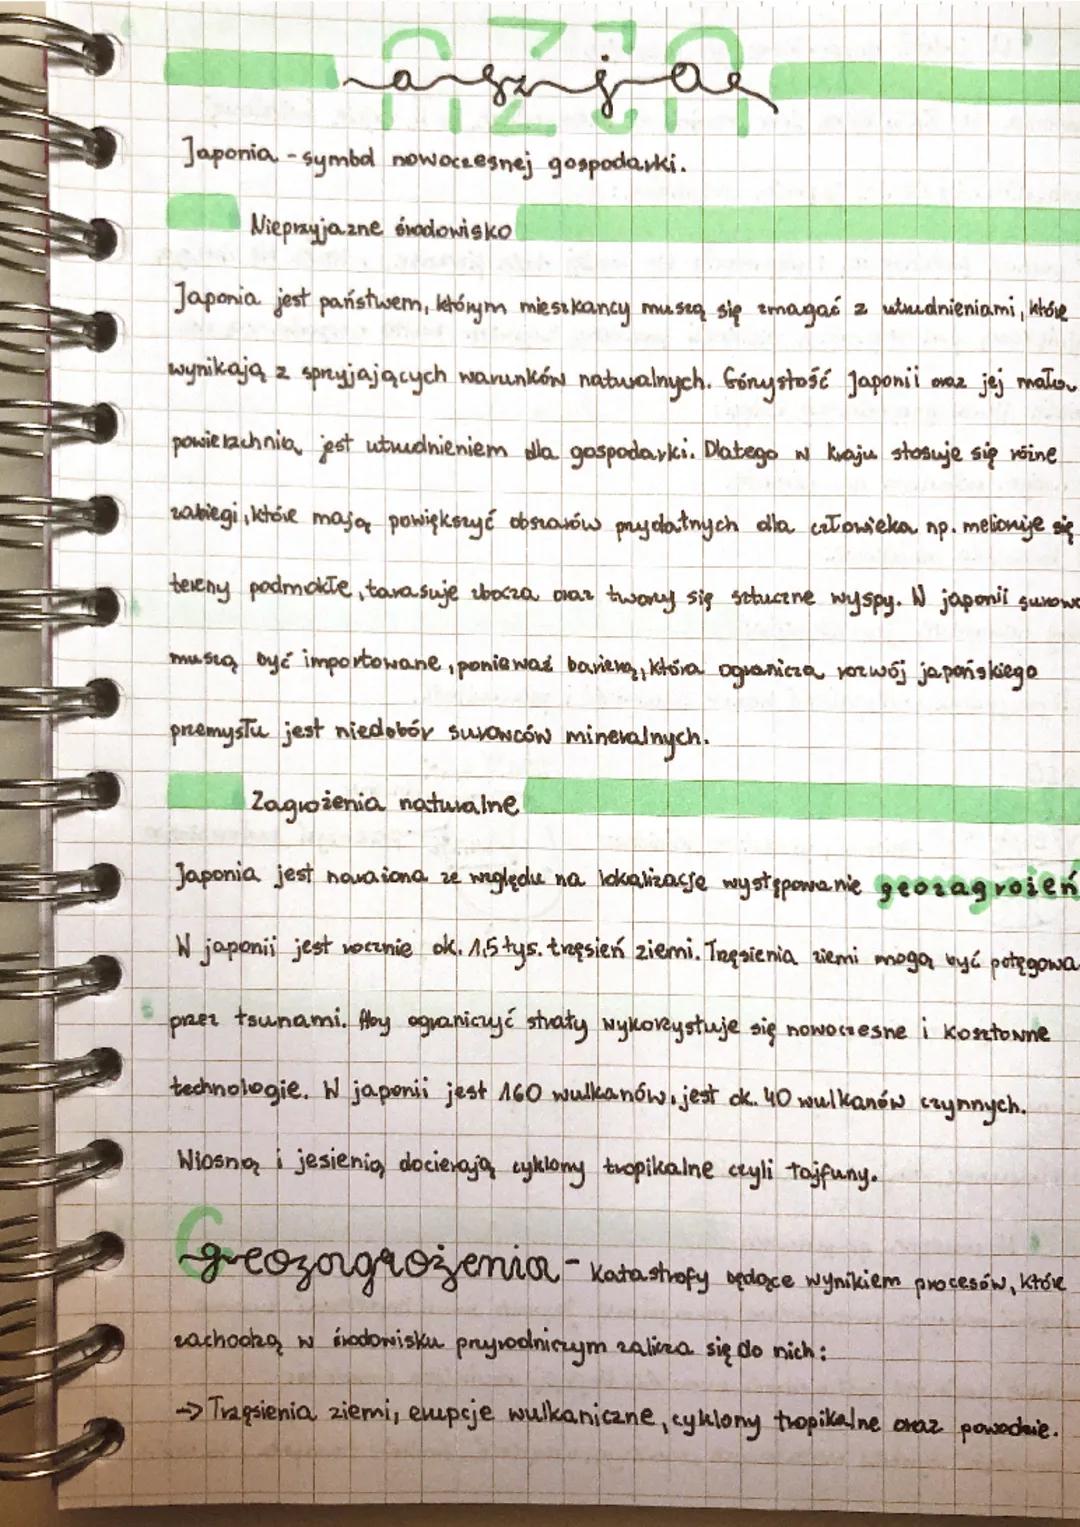 azja
Japonia - symbol nowoczesnej gospodarki.
Nieprzyjazne środowisko
Japonia jest państwem, którym mieszkańcy muszą się zmagać z utrudnieniami, które
wynikają z sprzyjających warunków naturalnych. Górystość Japonii oraz jej mała
powierzchnia jest utrudnieniem dla gospodarki. Dlatego w kraju stosuje się różne
zabiegi, które mają powiększyć obszarów przydatnych dla człowieka np. melioruje się
tereny podmokłe, tarasuje zbocza oraz tworzy się sztuczne wyspy. W japonii surowc
muszą być importowane, ponieważ barierą, która ogranicza rozwój japońskiego
przemysłu jest niedobór surowców mineralnych.
Zagrożenia naturalne
Japonia jest narażona ze względu na lokalizację występowanie geozagrożeń
W japonii jest rocznie ok. 1,5 tys. trzęsień ziemi. Trzęsienia ziemi mogą być potęgowa
przez tsunami. Aby ograniczyć straty wykorzystuje się nowoczesne i kosztowne
technologie. W japonii jest 160 wulkanów, jest ok. 40 wulkanów czynnych.
Wiosną i jesienią docierają cyklony tropikalne czyli tajfuny.
geozagrożenia - katastrofy będące wynikiem procesów, które
zachodzą w środowisku przyrodniczym zalicza się do nich:
→ Trzęsienia ziemi, erupcje wulkaniczne, cyklony tropikalne oraz powodzie.